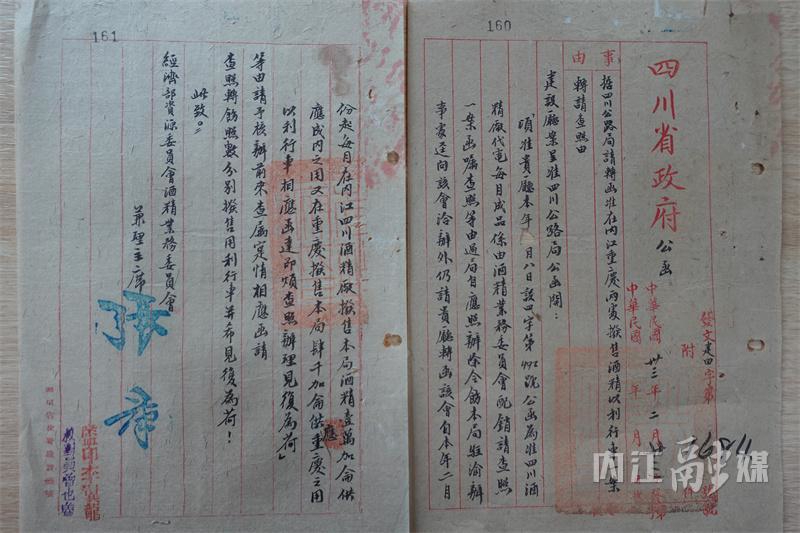 160
四川省政府 公函
發文建四字第
中華民國卅三年二月
中華民國 年 月
附 件
事由
據四川公路局請轉函准在內江重慶兩處撥售酒精以利行車一案
轉請查照由
建設廳案呈准四川公路局公函開：
「頃准貴廳本年一月八日設四字第492號公函為准四川酒
精廠代電每月成品係由酒精業務委員會配銷請查照
一案函囑查照等由過局自應照辦除令飭本局駐渝辦
事處逕向該會洽辦外仍請貴廳轉函該會自本年二月
161
份起每月在內江四川酒精廠撥售本局酒精壹萬加侖供
應成內之用又在重慶撥售本局肆千加侖供應重慶之用
以利行車相應函達即煩查照辦理見復為荷」
等由請予核辦前來查屬實情相應函請
查照轉飭照數分別撥售用利行車并希見復為荷！
此致
經濟部資源委員會酒精業務委員會
兼理主席
張羣
內江融媒